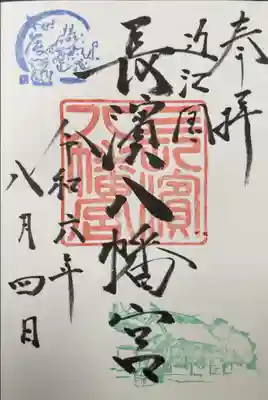 奉拝
近江国
長濱八幡宮
令和六年
八月四日
長濱八幡宮